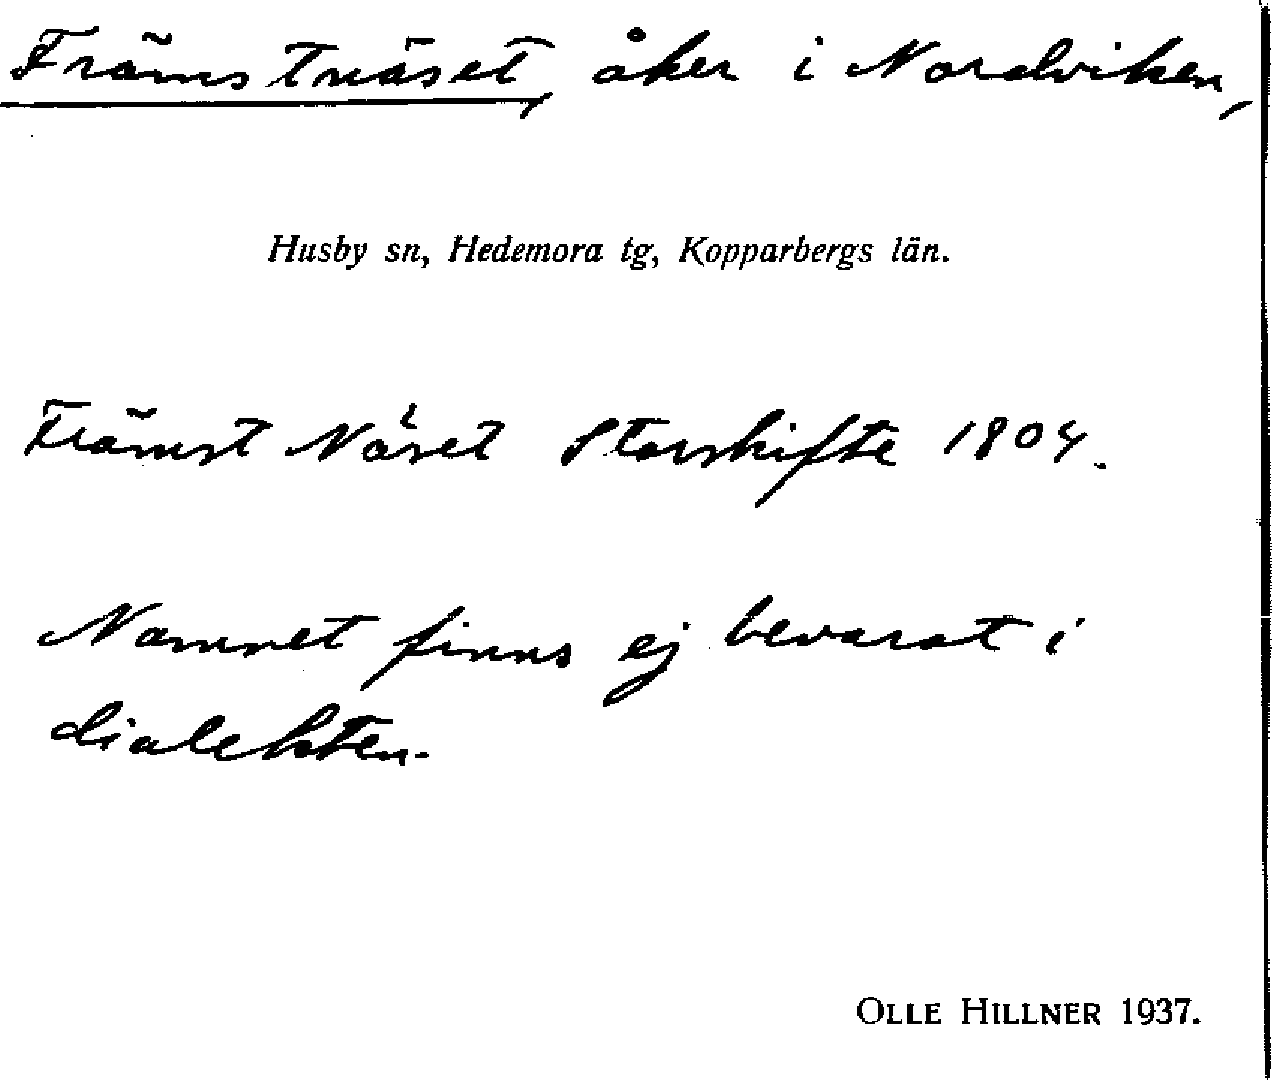 Främstnäset, åker i Nordviken,
Husby sn, Hedemora tg, Kopparbergs län.
Främst Näset Storskifte 1804.
Namnet finns ej bevarat i
dialekten.
OLLE HILLNER 1937.